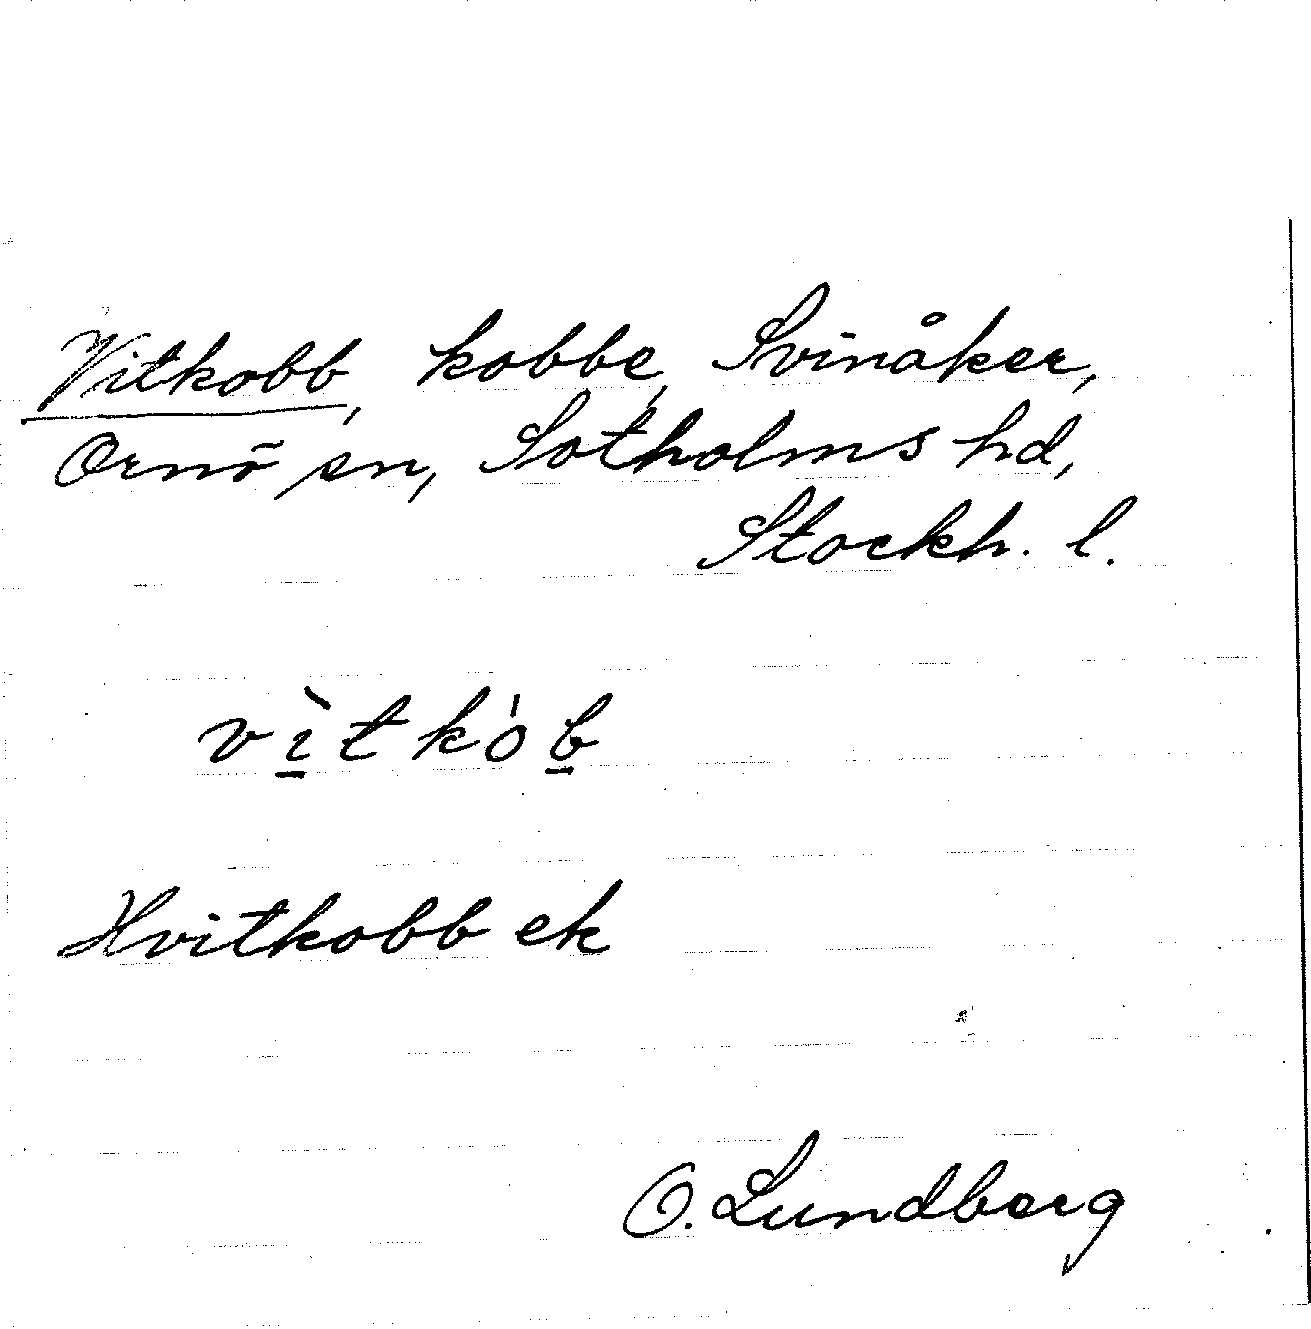 Vitkobb, kobbe, Svinåker,
Ornö sn, Sotholms hd,
Stockh. l.
vìtkób
Hvitkobb ek
O. Lundberg